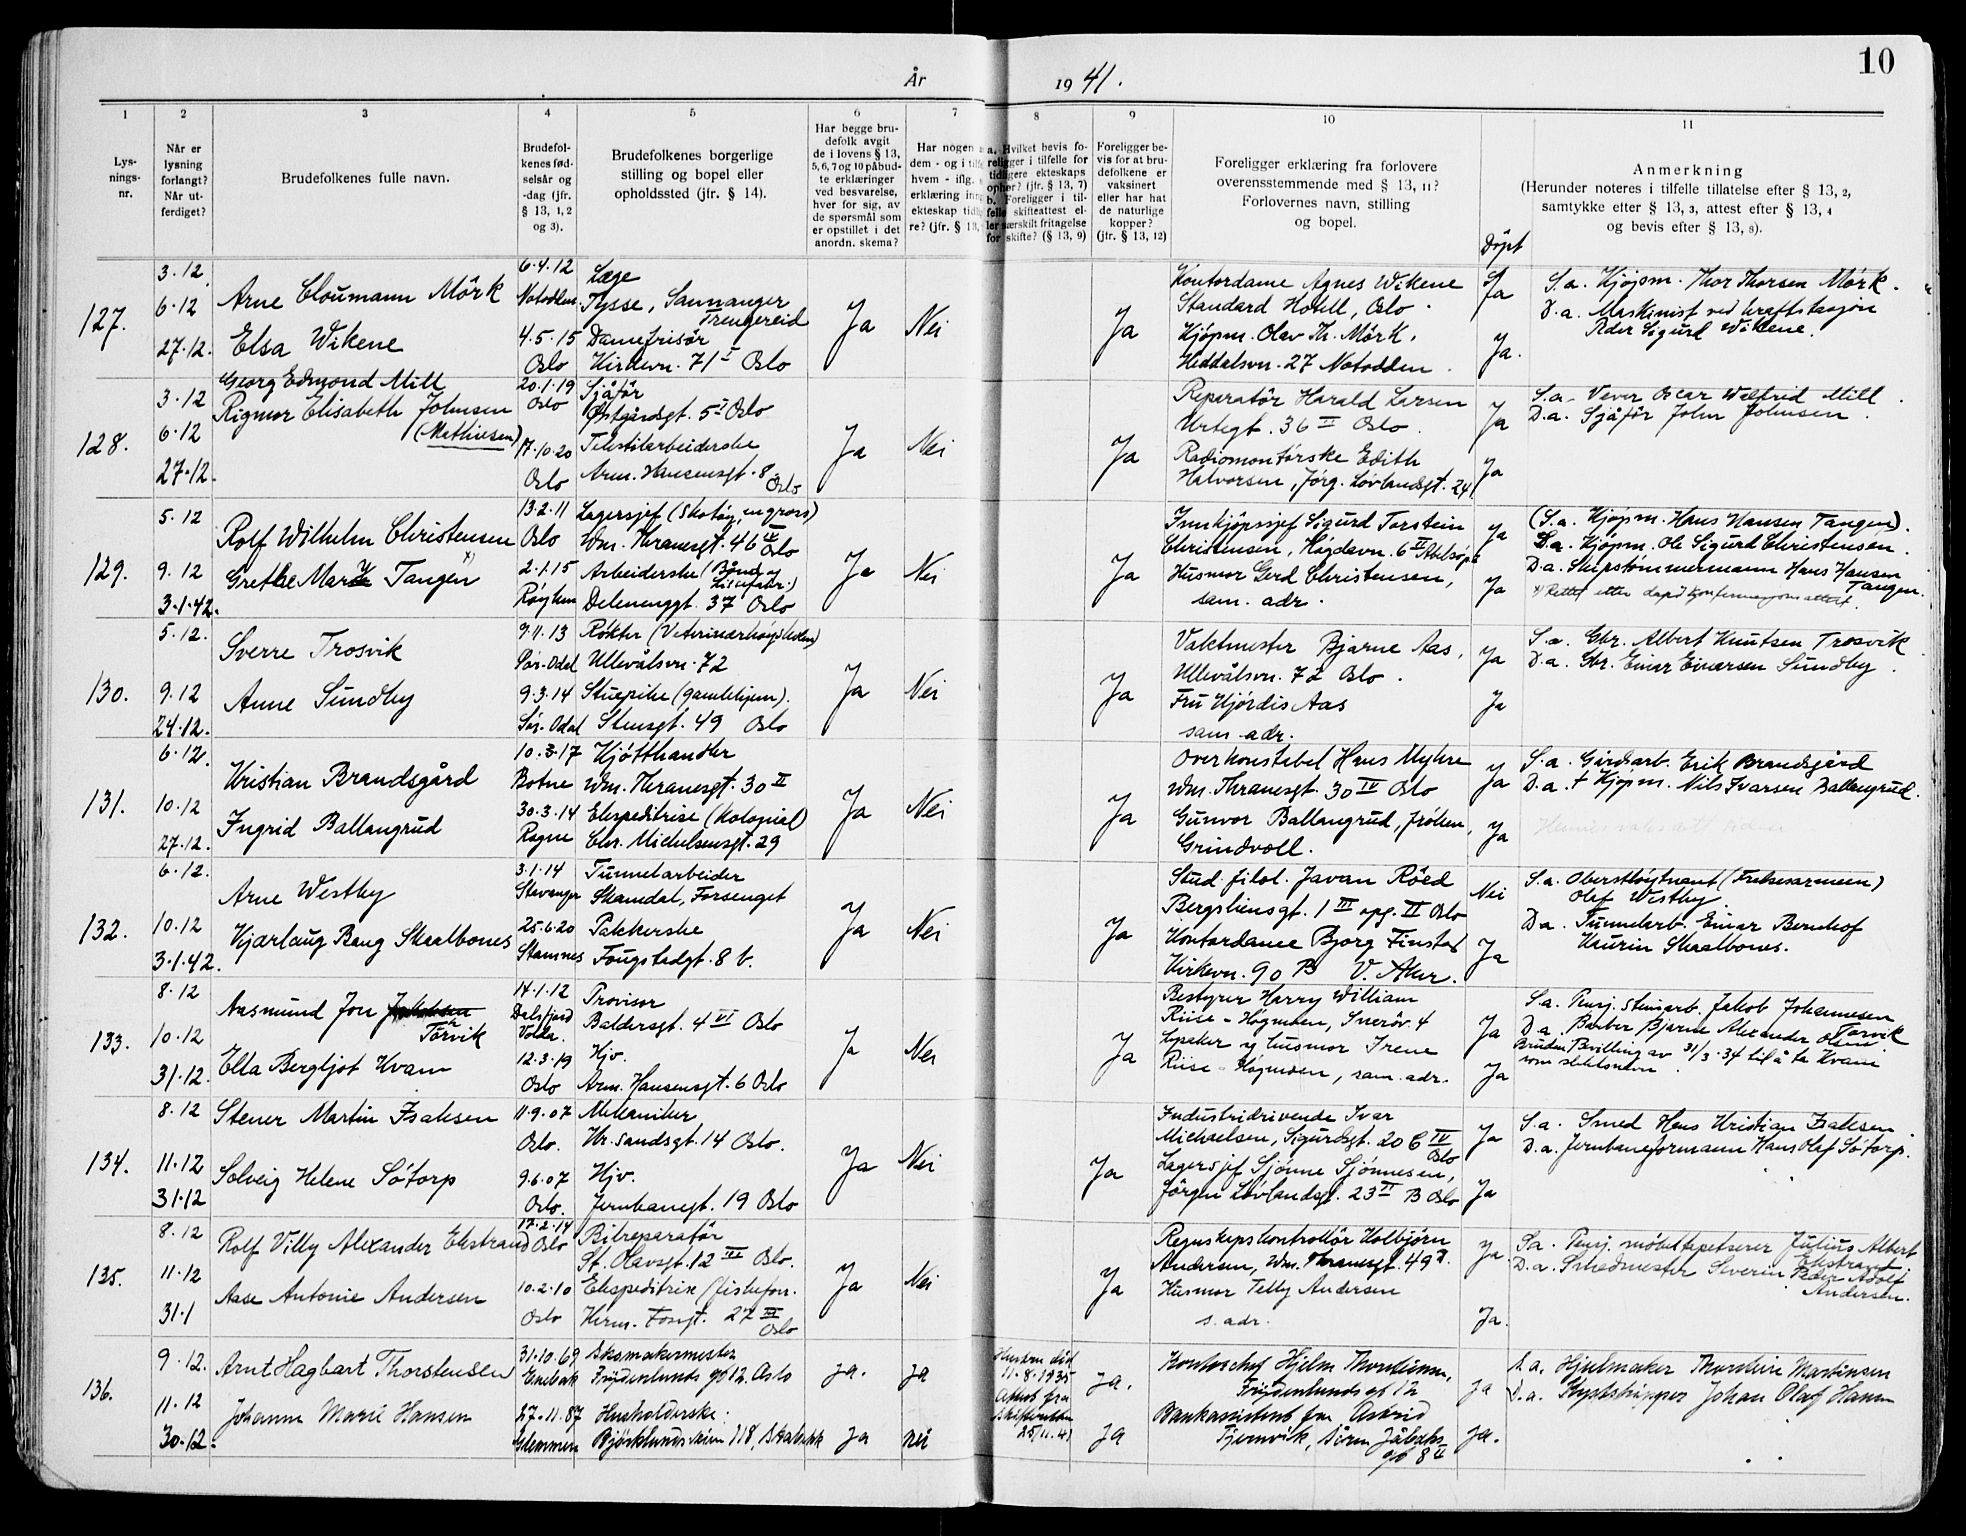 10
År 1941.
1 2 3 4 5 6 7 8 9 10 11
Lys-
nings-
nr.
Når er
lysning
forlangt?
Når ut-
ferdiget?
Brudefolkenes fulle navn.
Brudefol-
kenes fød-
selsår og
-dag (jfr.
§ 13, 1, 2
og 3).
Brudefolkenes borgerlige
stilling og bopel eller
opholdssted (jfr. § 14).
Har begge bru-
defolk avgit
de i lovens § 13,
5, 6, 7 og 10 påbud-
te erklæringer
ved besvarelse,
hver for sig, av
de spørsmål som
er opstillet i det
anordn. skema?
Har nogen
dem - og i
hvem - iflg.
erklæring
ekteskap
re? (jfr. § 13,
a. Hvilket bevis fo-
religger i tilfelle for
tidligere ekteskaps
ophør? (jfr. § 13, 7)
b. Foreligger i til-
felle skifteattest el-
ler særskilt fritagelse
for skifte? (§ 13, 9)
Foreligger be-
vis for at bru-
defolkene er
vaksinert
eller har hat
de naturlige
kopper?
(jfr. § 13, 12)
Foreligger erklæring fra forlovere
overensstemmende med § 13, 11?
Forlovernes navn, stilling
og bopel.
Döpt
Anmerkning
(Herunder noteres i tilfelle tillatelse efter § 13, 2,
samtykke efter § 13, 3, attest efter § 13, 4
og bevis efter § 13, 8).
127.
3.12
6.12
27.12.
Arne Cloumann Mörk
Elsa Wikene
6.4.12
Notodden
4.5.15
Oslo
Læge
Tysse, Samnanger
Trengereid
Damefrisör
Kirkevn. 71 I Oslo
Ja
Nei
Ja
Kontordame Agnes Wikene
Standard Hotell, Oslo.
Kjöpm. Olav Th. Mörk,
Heddalsvn. 27 Notodden.
Ja
Ja.
S.a. Kjöpm. Thor Thorsen Mörk.
D.a. Maskinist ved kraftstasjon
Peder Sigurd Wikene.
128.
3.12
6.12
27.12.
Georg Edmond Mill
Rigmor Elisabeth Johnsen
(Mathisen)
20.1.19
Oslo
17.10.20
Oslo
Sjåför
Östgårdsgt. 5 I Oslo
Tekstilarbeiderske
Arm. Hansensgt. 8
Oslo
Ja
Nei
Ja
Reparatör Harald Larsen
Urtegt. 36 II Oslo.
Radiomontörske Edith
Halvorsen, Jörg. Lövlandsgt. 24
Ja
Ja
S.a. Vever Oscar Wilfrid Mill.
D.a. Sjåför John Johnsen.
129.
5.12
9.12
3.1.42.
Rolf Wilhelm Christensen
Grethe Mary Tangen x)
13.2.11
Oslo
2.1.15
Röyken
Lagersjef (Skotöy, engros)
Wm. Thranesgt. 46 IV Oslo
Arbeiderske
Delenenggt. 37 Oslo
Ja
Nei
Ja
Innkjöpssjef Sigurd Torstein
Christensen, Hagdavn. 6 II
Husmor Gerd Christensen,
sam. adr.
Ja
Ja
(S.a. Kjöpm. Hans Hansen Tangen).
S.a. Kjöpm. Ole Sigurd Christensen.
D.a. Skipstömmermann Hans Hansen
Tangen.
x) Rettet etter dåp &
130.
5.12.
9.12
24.12.
Sverre Trosvik
Anne Sundby
9.11.13
Sör-Odal
9.3.14
Sör-Odal
Rökter (Veterinærhöyskolen)
Ullevålsvn. 72
Stuepike (gamlehjem).
Stensgt. 49 Oslo
Ja
Nei
Ja
Vaktmester Bjarne Aas,
Ullevålsvn. 72 Oslo.
Fru Hjördis Aas
sam adr.
Ja
Ja
S.a. Gbr. Albert Knutsen Trosvik
D.a. Gbr. Einar Einarsen Sundby.
131.
6.12.
10.12
27.12.
Kristian Brandsgård
Ingrid Ballangrud
10.3.17
Botne
30.3.14
Kjötthandler
Wm. Thranesgt. 30 II
Ekspeditrise (Kolonial)
Chr. Michelsensgt. 29
Ja
Nei
Ja
Overkonstabel Hans Myhre
Wm. Thranesgt. 30 IV Oslo
Gunvor Ballangrud, fröken,
Grindvoll.
Ja
Ja
S.a. Gårdsarb. Erik Brandsgård
D.a. † Kjöpm. Nils Ivarsen Ballangrud.
132.
6.12.
10.12
3.1.42.
Arne Westby
Kjærlaug Bang Skaalbones
3.1.14
Stavanger
25.6.20
Stamnes
Tunnelarbeider
Skamdal, Forsenget
Pakkerske
Fougstadgt. 8 b.
Ja
Nei
Ja
Stud. filol. Javan Röed
Bergsliensgt. 1 III opg. II Oslo
Kontordame Bjorg Finstad
Kirkevn. 90 B V. Aker.
Nei
Ja
S.a. Oberstlöytnant (Frelsesarmeen)
Olaf Westby.
D.a. Tunnelarb. Einar Bernhof
Kaurin Skaalbones.
133.
8.12
10.12
31.12.
Aasmund Jon
Tarvik
Ella Bergljot Kvam
14.1.12
Dalsfjord
Volda.
12.3.19
Oslo
Provisor
Baldersgt. 4 VI Oslo
Hjv.
Arm. Hansensgt. 6 Oslo
Ja
Nei
Ja
Bestyrer Harry William
Riise-Högmoen, Sneröv. 4
og husmor Irene
Riise-Högmoen, sam. adr.
Ja
Ja
S.a. Pensj. steinarb. Jakob Johannesen
Tarvik
D.a. Barber Bjarne Alexander Olsen.
Bruden Bevilling av 31/3.34 til å ta Kvam
som slektsnavn.
134.
8.12
11.12
31.12
Stener Martin Isaksen
Solveig Helene Sötorp
11.9.07
Oslo.
9.6.07
Oslo.
Mekaniker
Kr.sandsgt. 14 Oslo.
Hjv.
Jernbanegt. 19 Oslo
Ja
Nei
Ja
Industridrivende Ivar
Michaelsen, Sigurdsgt. 20 C IV
Oslo
Lagersjef Sjönne Sjönnesen,
Jörgen Lövlandsgt. 23 II B Oslo
Ja
Ja
S.a. Smed Hans Kristian Isaksen.
D.a. Jernbaneformann Hans Olaf Sötorp.
135.
8.12
11.12
31.1
Rolf Villy Alexander Ekstrand
Aase Antonie Andersen
17.2.14
Oslo
10.2.10
Oslo
Bilreparatör
St. Olavsgt. 12 III Oslo.
Ekspeditrise (fiskeforr.
Herm. Fossgt. 27 III
Oslo
Ja
Nei
Ja
Regnskapskontrollör Kolbjörn
Andersen, Wm. Thranesgt. 49 II.
Husmor Telly Andersen
s. adr.
Ja.
Ja.
S.a. Pensj. möbeltapetserer Julius Albert
Ekstrand.
D.a. Smedmester Severin Adolf
Andersen.
136.
9.12.
11.12
30.12.
Arnt Hagbart Thorstensen
Johanne Marie Hansen
31.10.69
Enebak
27.11.87
Glemmen
Skomakermester
Frydenlunds gt 12. Oslo
Husholderske.
Björklundsveien 118, Stabekk
Ja.
Ja
Ja
Nei
Hustru död
11.8.1935
Attest fra
Skifteretten
25/11.41
Ja.
Ja
Kontorchef Hjalm Thorstensen,
Frydenlunds gt 12
Bankassistent frøk Astrid
Tjernvik, Sören Jåbæks-
gt 8 II
Ja
Ja.
S.a. Hjulmaker Thorstein Martinsen
D.a. Johan Olaf Hansen